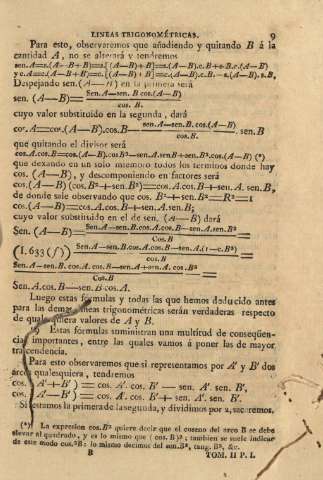 LINEAS TRIGONOMÉTRICAS. 9
Para esto, observaremos que añadiendo y quitando B á la
cantidad A, no se alterará y tendremos
sen.A=s.(A—B+B)=s.[(A—B)+B]=s.(A—B).c.B+s.B.c.(A—B)
y c.A=c.(A—B+B)=c.[(A—B)+B]=c.(A—B).c.B.—s.(A—B).s.B,
Despejando sen.(A—B) en la primera será
sen. (A—B)= Sen.A—sen.B.cos.(A—B) / cos. B.
cuyo valor substituido en la segunda, dará
cos.A=cos.(A—B).cos.B— sen.A—sen.B.cos.(A—B) / cos.B. sen.B
que quitando el divisor será
cos.A.cos.B=cos.(A—B).cos.B²—sen.A.sen.B+sen.B².cos.(A—B) (*)
que dexando en un solo miembro todos los términos donde hay
cos. (A—B), y descomponiendo en factores será
cos.(A—B)(cos.B²+sen.B²)=cos.A.cos.B+sen.A.sen.B,
de donde sale observando que cos. B²+sen.B²=R²=1
cos.(A—B)=cos.A.cos.B+sen.A.sen.B;
cuyo valor substituido en el de sen. (A—B) dará
Sen. (A—B)= Sen.A—sen.B.cos.A.cos.B—sen.A.sen.B² / Cos.B =
(I. 633 (f)) Sen.A—sen.B.cos.A.cos.B—sen.A.(1—c.B²) / cos.B =
Sen.A—sen.B.cos.A.cos.B—sen.A+sen.A.cos.B² / Cos.B =
Sen.A.cos.B—sen.B.cos.A.
Luego estas fórmulas y todas las que hemos deducido antes
para las demas lineas trigonométricas serán verdaderas respecto
de qualesquiera valores de A y B.
Estas formulas suministran una multitud de conseqüen-
importantes, entre las quales vamos á poner las de mayor
trascendencia.
Para esto observaremos que si representamos por A' y B' dos
arcos qualesquiera, tendremos
cos. (A'+B') = cos. A'. cos. B' — sen. A'. sen. B',
cos. (A'—B') = cos. A'. cos. B'+ sen. A'. sen. B'.
Si restamos la primera de la segunda, y dividimos por 2, sacaremos.
(*) La expresion cos.B² quiere decir que el coseno del arco B se debe
elevar al quadrado, y es lo mismo que (cos. B)²; tambien se suele indicar
de este modo cos.²B: lo mismo decimos del sen.B², tang. B², &c.
B TOM. II P. I.